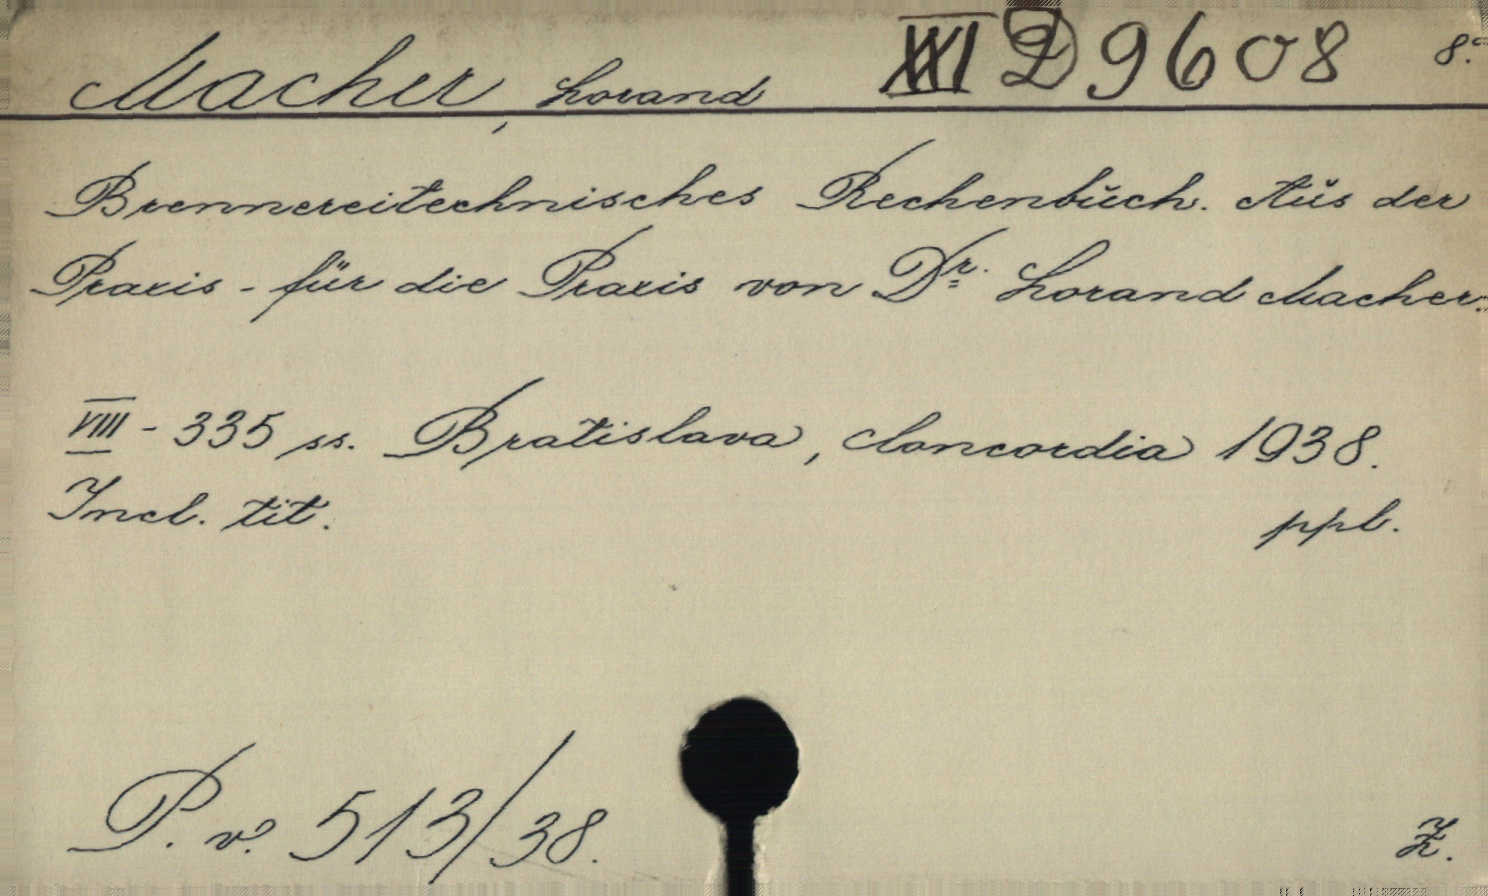 Macher, Lorand XXI D 9608 8.°
Brennereitechnisches Rechenbŭch. Aŭs der
Praxis - für die Praxis von Dr. Lorand Macher.
VIII - 335 ss. Bratislava, Concordia 1938.
Incl. tit. ppb.
P. v. 513/38. Z.